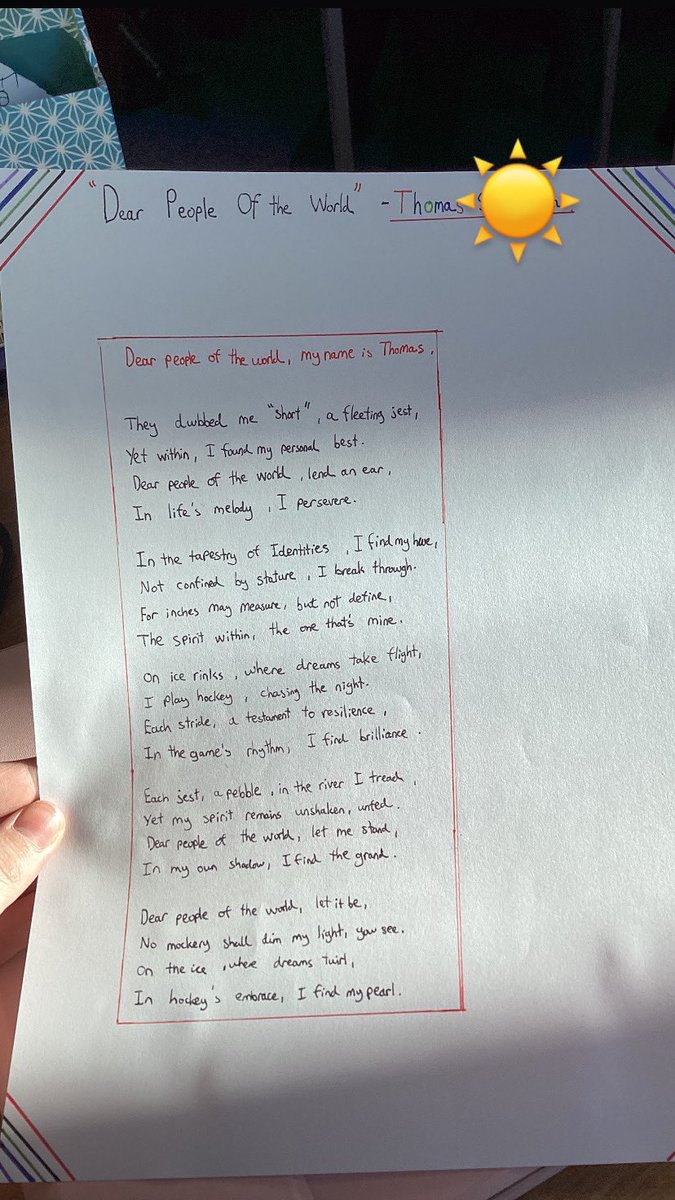 "Dear People Of the World" - Thomas
Dear people of the world, my name is Thomas.
They dubbed me "short", a fleeting jest,
Yet within, I found my personal best.
Dear people of the world, lend an ear,
In life's melody, I persevere.
In the tapestry of Identities, I find my hue,
Not confined by stature, I break through.
For inches may measure, but not define,
The spirit within, the one that's mine.
On ice rinks, where dreams take flight,
I play hockey, chasing the night.
Each stride, a testament to resilience,
In the game's rhythm, I find brilliance.
Each jest, a pebble, in the river I tread,
Yet my spirit remains unshaken, unfed.
Dear people of the world, let me stand,
In my own shadow, I find the grand.
Dear people of the world, let it be,
No mockery shall dim my light, you see.
On the ice, where dreams twirl,
In hockey's embrace, I find my pearl.